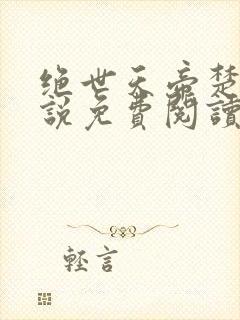 绝世天帝楚
說免費閱讀
輕言